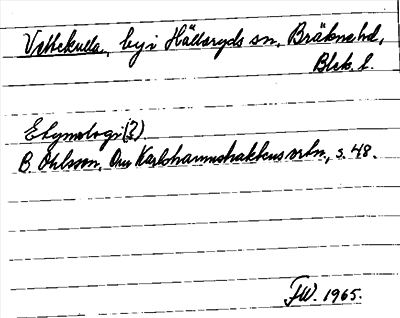 Vettekulla, by i Hällaryds sn, Bräkne hd,
Blek. l.
Etymologi (?)
B. Ohlsson, Om Karlshamnstraktens ortn., s. 48.
FW. 1965.